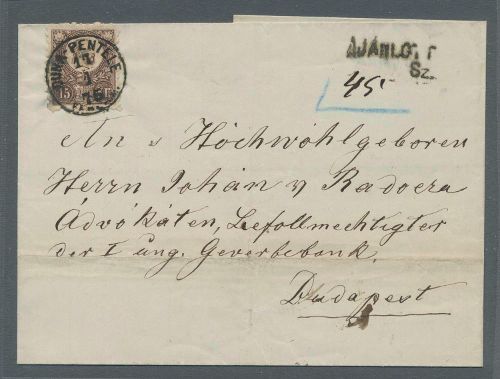 DUNA PENTELE
17
1
75
15 Kr
AJÁNLOTT
Sz.
45
An s Hochwohlgeboren
Herrn Johan v Radocza
Advokáten, Befollmechtigter
der I ung. Gewerbebank,
Budapest